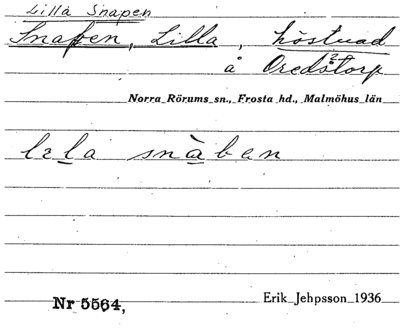 Lilla Snapen
Snapen, Lilla, höstvad
å Oredstorp 2⁴
Norra Rörums sn., Frosta hd., Malmöhus län
lɪla snàben
Nr 5564,
Erik Jehpsson 1936